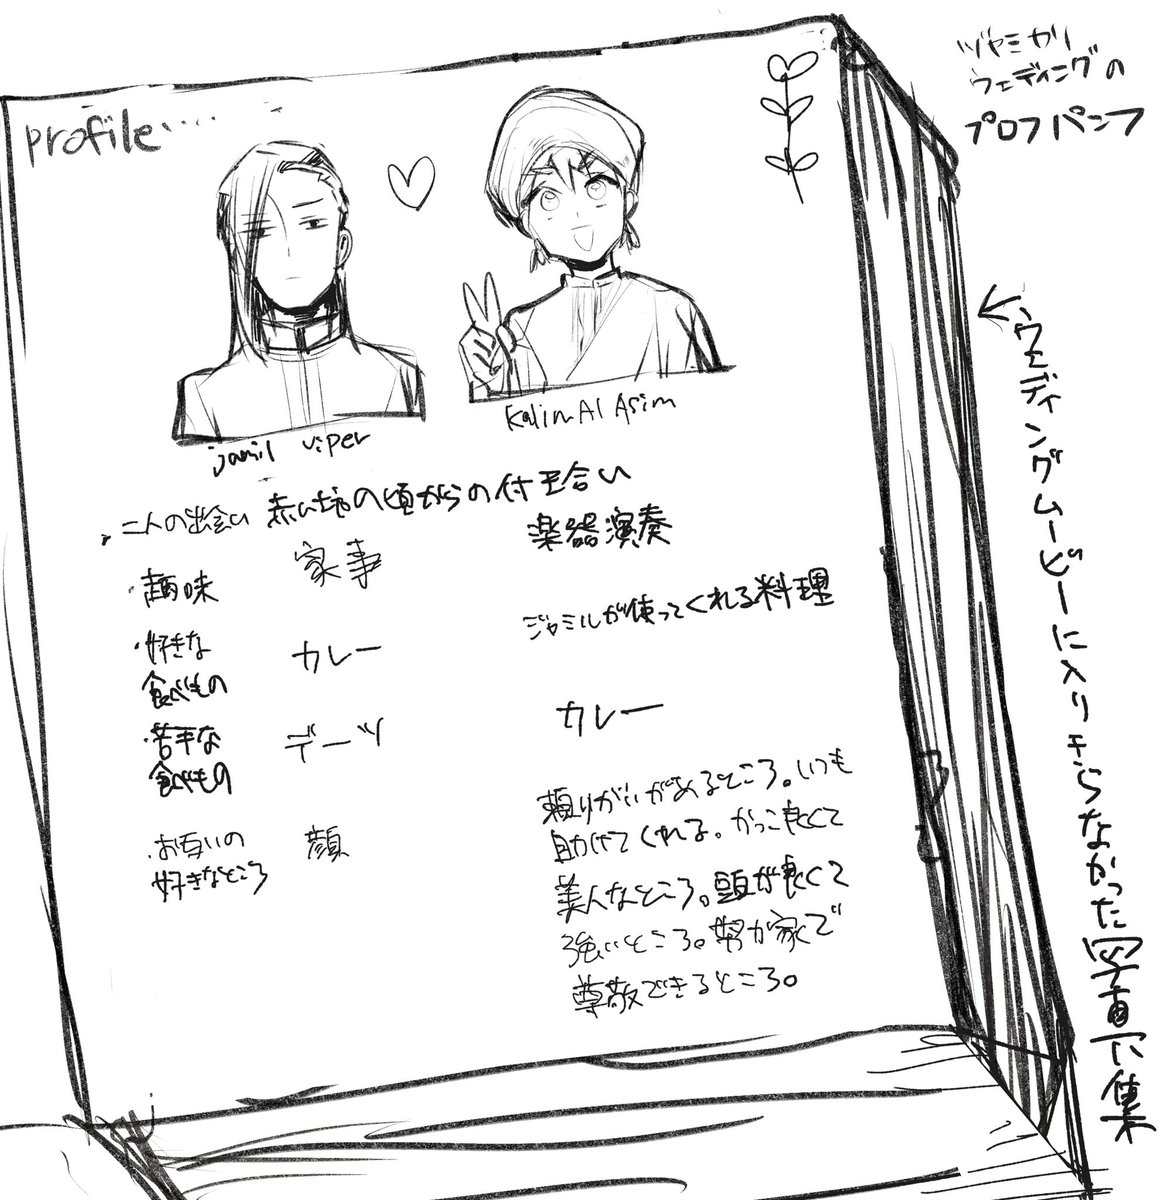 ジャミカリ
ウェディングの
プロフパンフ
profile....
jamil viper
Kalim Al Asim
・二人の出会い 赤い塊の頃からの付き合い
・趣味 家事 楽器演奏
・好きな
食べもの カレー ジャミルが使ってくれる料理
・苦手な
食べもの デーツ カレー
・お互いの
好きなところ 顔
頼りがいがあるところ。いつも
助けてくれる。かっこ良くて
美人なところ。頭が良くて
強いところ。努力家で
尊敬できるところ。
←ウェディングムービーに入りきらなかった写真集